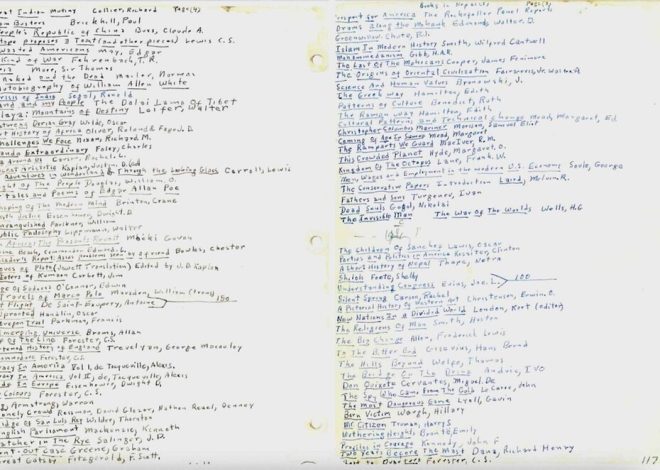 Great Indian Mutiny Collier, Richard Page (4)
Dam Busters Brickhill, Paul
People's Republic of China Buss, Claude A.
Screwtape proposes a Toast (and other pieces) Lewis C.S.
Wasted Americans May, Edgar
Kind of War Fehrenbach, T.R.
More, Sir Thomas
Naked and the Dead Mailer, Norman
Autobiography of William Allen White
Crisis of India Segal, Ronald
Land and my People The Dalai Lama of Tibet
Mountains of Destiny
Picture of Dorian Gray Wilde, Oscar
History of Africa Oliver, Roland & Fage, J.D.
Challenges We Face Nixon, Richard M.
Extraordinary Foley, Charles
Carson, Rachel L.
Kaplan, Justin D.
Adventures in Wonderland & Through the Looking Glass Carroll, Lewis
of the People Douglas, William O.
Tales and Poems of Edgar Allan Poe
Shaping of the Modern Mind Brinton, Crane
Eisenhower, Dwight D.
Unvanquished Faulkner, William
Public Philosophy Lippmann, Walter
African: The Peasants Revolt Mbeki Govan
Bowles, Chester
of Plato (Jowett Translation) Edited by J.D. Kaplan
of Kumaon Corbett, Jim
Edge of Sadness O'Connor, Edwin
Travels of Marco Polo Marsden, William (Trans)
Flight De Saint-Exupery, Antoine 150
Uprooted Handlin, Oscar
Oregon Trail Parkman, Francis
Emerging Universe Broms, Allan
Of The Line Forester, C.S.
History of England Trevelyan, George Macauley
Commodore Forester, C.S.
Democracy In America Vol I, de Tocqueville, Alexis.
Democracy In America, Vol II, de, Tocqueville, Alexis
In Europe Eisenhower, Dwight D.
Colours Forester, C.S.
Armstrong, Warren
Lonely Crowd Riesman, David Glazer, Nathan Reuel, Denney
Bridge of San Luis Rey Wilder, Thornton
English Parliament Mackenzie, Kenneth
Catcher In The Rye Salinger, J.D.
Burnt-Out Case Greene, Graham
Great Gatsby Fitzgerald, F. Scott,
Books in Paperback Page (3)
Prospect for America The Rockefeller Panel Reports
Drums Along the Mohawk Edmonds, Walter D.
Islam In Modern History Smith, Wilfred Cantwell
Mohammedanism Gibb, H.A.R.
The Last Of The Mohicans Cooper, James Fenimore
The Origins of Oriental Civilization Fairservis, Jr. Walter A
Science And Human Values Bronowski, J.
The Greek Way Hamilton, Edith
Patterns of Culture Benedict, Ruth
The Roman Way Hamilton, Edith
Cultural Patterns and Technical Change Mead, Margaret, Ed
Christopher Columbus Mariner Morison, Samuel Eliot
Coming of Age In Samoa Mead, Margaret
The Ramparts We Guard MacIver, R.M.
This Crowded Planet Hyde, Margaret, O.
Kingdom Of The Octopus Lane, Frank, W.
Wages and Employment in the modern U.S. Economy Soule, George
The Conservative Papers Introduction Laird, Melvin R.
Fathers and Sons Turgenev, Ivan
Dead Souls Gogol, Nikolai
The Invisible Man The War of The Worlds Wells, H.G
The Children Of Sanchez Lewis, Oscar
Parties and Politics in America Rossiter, Clinton
A Short History of Nepal Thapa, Netra
Shiloh Foote, Shelby
Understanding Congress 100
Silent Spring Carson, Rachel
A Pictorial History of Western Art Christensen, Erwin O.
New Nations In a Divided World London, Kurt (editor)
The Religions Of Man Smith, Huston
The Big Change Allen, Frederick Lewis
In The Bitter End Gisevius, Hans Bernd
The Hills Beyond Wolfe, Thomas
The Bridge On The Drina Andric, IVO
Don Quixote Cervantes, Miguel De
The Spy Who Came From The Cold Le Carre, John
The Most Dangerous Game Lyall, Gavin
Born Victim Waugh, Hillary
Mr Citizen Truman, Harry S
Wuthering Heights Bronte, Emily
Profiles in Courage Kennedy, John F
Two Years Before The Mast Dana, Richard Henry
Forester, C.S.
117